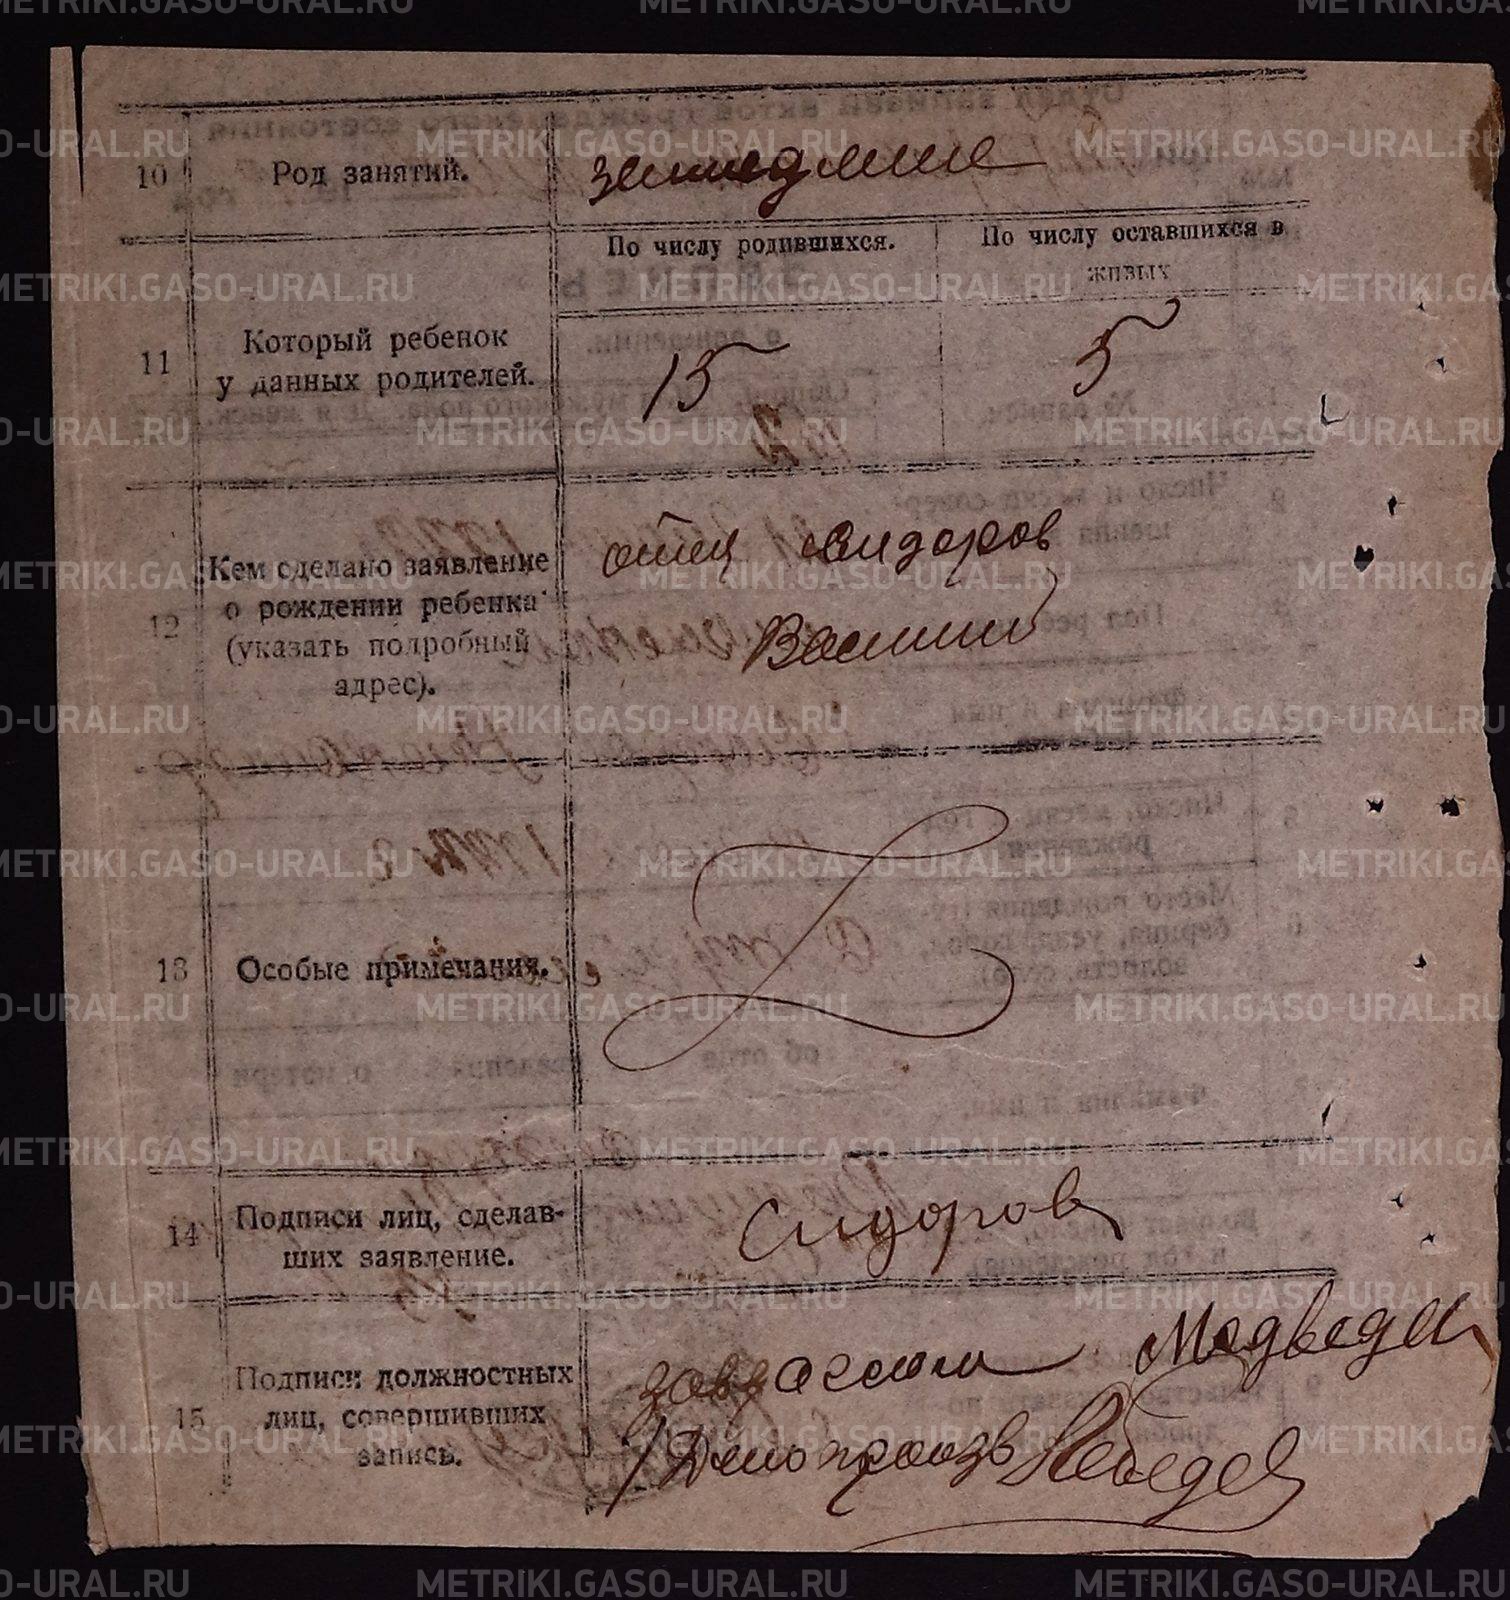 10 Род занятий. земледелие
По числу родившихся. По числу оставшихся в
живых
11 Который ребенок
у данных родителей. 15 5
12 Кем сделано заявление
о рождении ребенка
(указать подробный
адрес).
отец Сидоров
Василий
13 Особые примечания.
14 Подписи лиц, сделав-
ших заявление.
Сидоров
15 Подписи должностных
лиц, совершивших
запись.
Медведев
Делопроизв Лебедев
METRIKI.GASO-URAL.RU